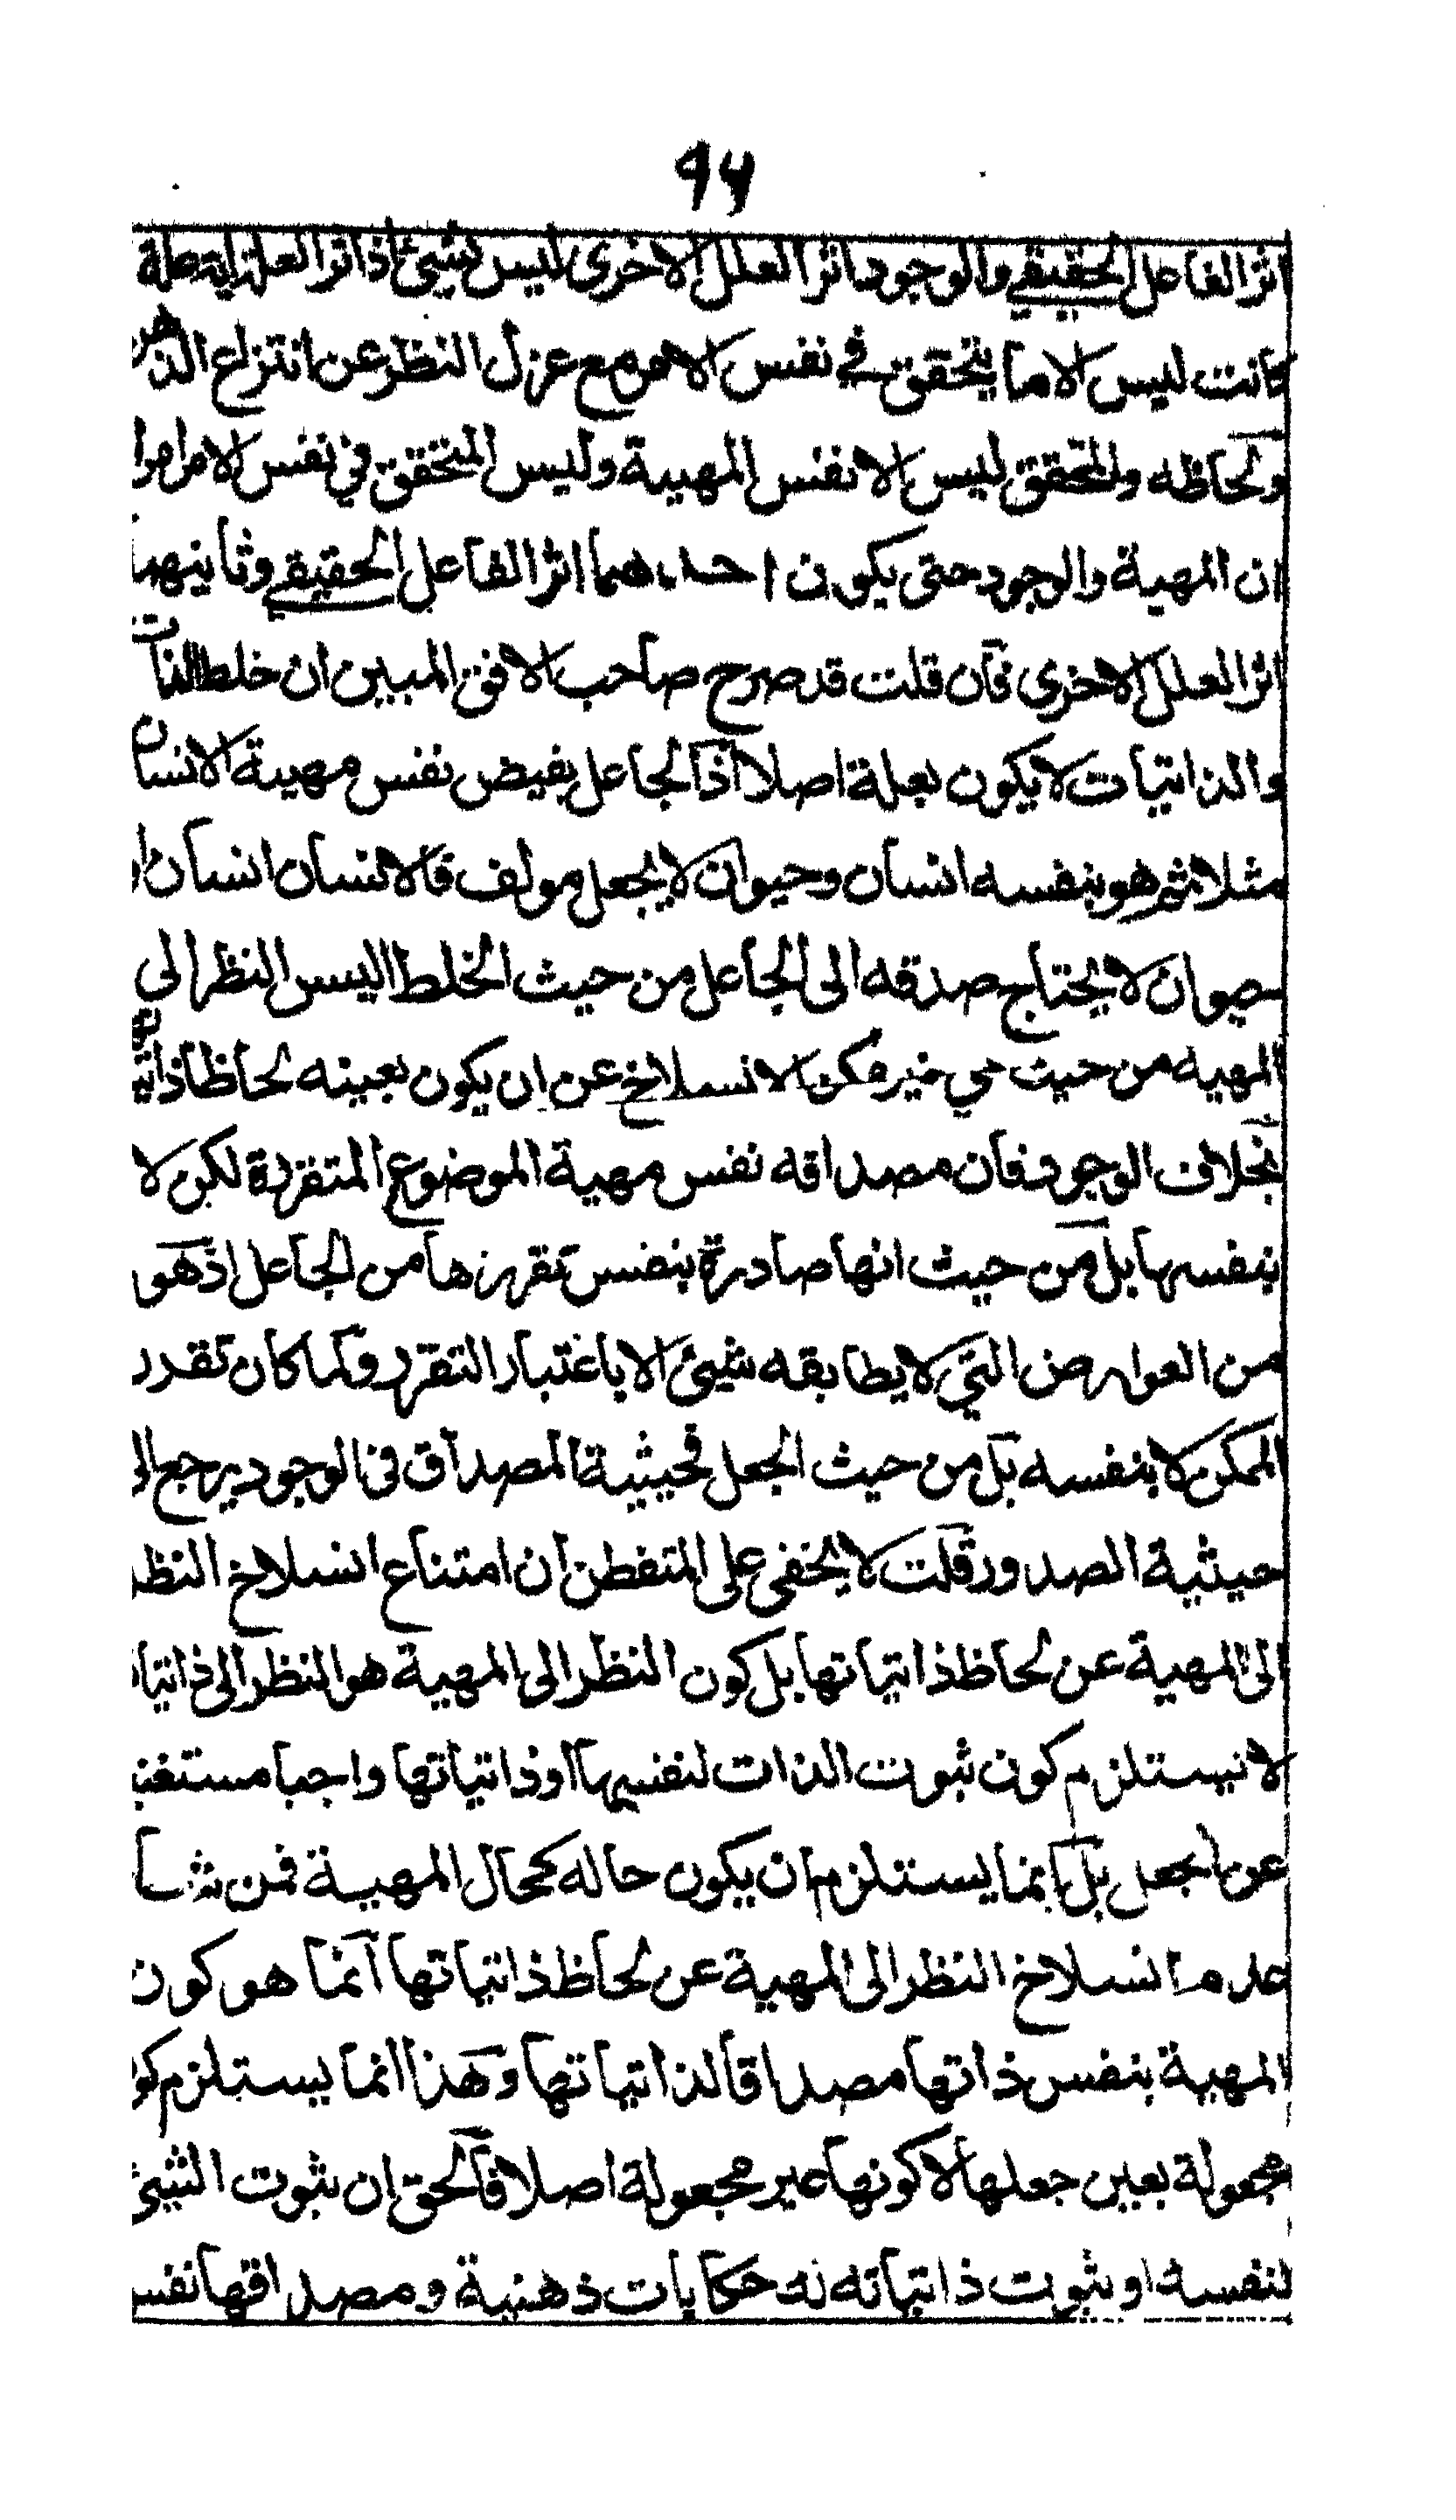 ٩٤
اثر الفاعل الحقيقي والوجود اثر العلل الاخرى ليس بشيئ اذ اثر العلة اية علة
كانت ليس الا ما يتحقق في نفس الامر مع عزل النظر عن انتزاع الذهن
ولحاظه والمتحقق ليس الا نفس المهية وليس المتحقق في نفس الامر امرا
ان المهية والوجود حتى يكون احدهما اثر الفاعل الحقيقي وثانيهما
اثر العلل الاخرى فان قلت قد صرح صاحب الافق المبين ان خلط الذات
والذاتيات لا يكون بعلة اصلا اذ الجاعل يفيض نفس مهية الانسان
مثلا ثم هو بنفسه انسان وحيوان لا بجعل مولف فالانسان انسان او
حيوان لا يحتاج صدقه الى الجاعل من حيث الخلط اليس النظر الى
المهية من حيث هي غير ممكن الانسلاخ عن ان يكون بعينه لحاظا ذاتياته
بخلاف الوجود فان مصداقه نفس مهية الموضوع المتقررة لكن لا
بنفسها بل من حيث انها صادرة بنفس تقررها من الجاعل اذ هو
من العوارض التي لا يطابقه شيئ الا باعتبار التقرر وكما كان تقرر
الممكن لا بنفسه بل من حيث الجعل فحيثية المصداق في الوجود يرجع الى
حيثية الصدور قلت لا يخفى على المتفطن ان امتناع انسلاخ النظر
الى المهية عن لحاظ ذاتياتها بل كون النظر الى المهية هو النظر الى ذاتياتها
لا يستلزم كون ثبوت الذات لنفسها او ذاتياتها واجبا مستغنيا
عن الجعل بل انما يستلزم ان يكون حاله كحال المهية فمن شا
عدم انسلاخ النظر الى المهية عن لحاظ ذاتياتها انما هو كون
المهية بنفس ذاتها مصداقا لذاتياتها وهذا انما يستلزم كو
مجعولة بعين جعلها لا كونها غير مجعولة اصلا فالحق ان ثبوت الشيئ
لنفسه او ثبوت ذاتياته له حكايات ذهنية ومصداقها نفس